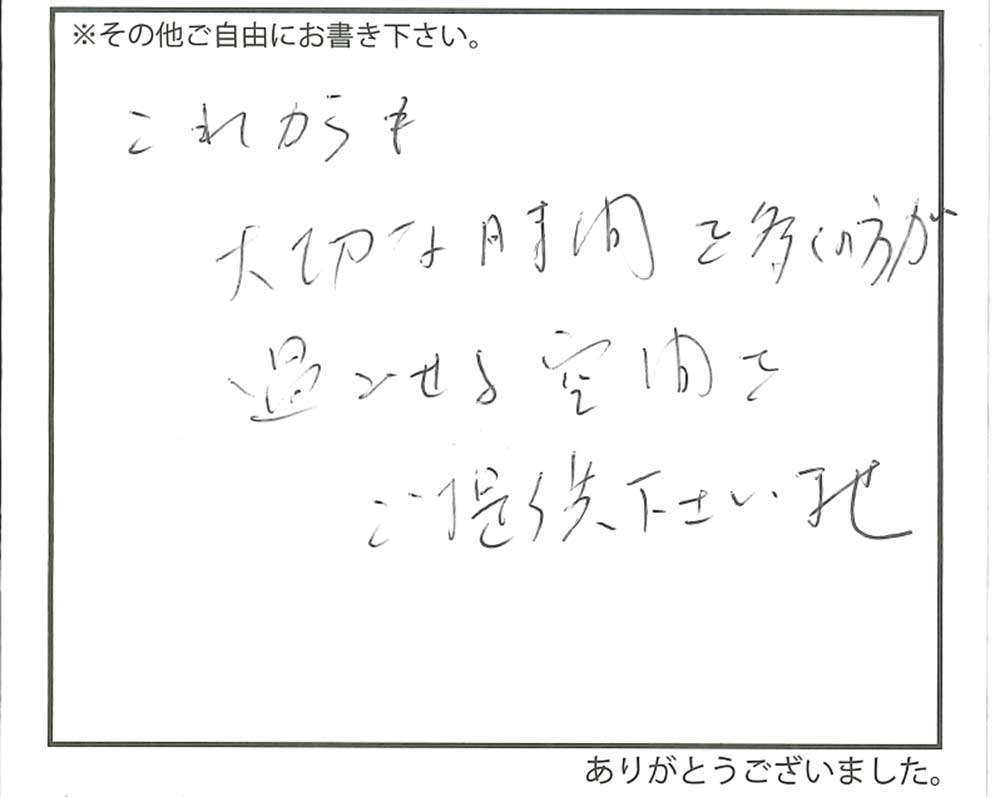 ※その他ご自由にお書き下さい。
これからも
大切な時間を多くの方が
過ごせる空間を
ご提供下さいませ
ありがとうございました。